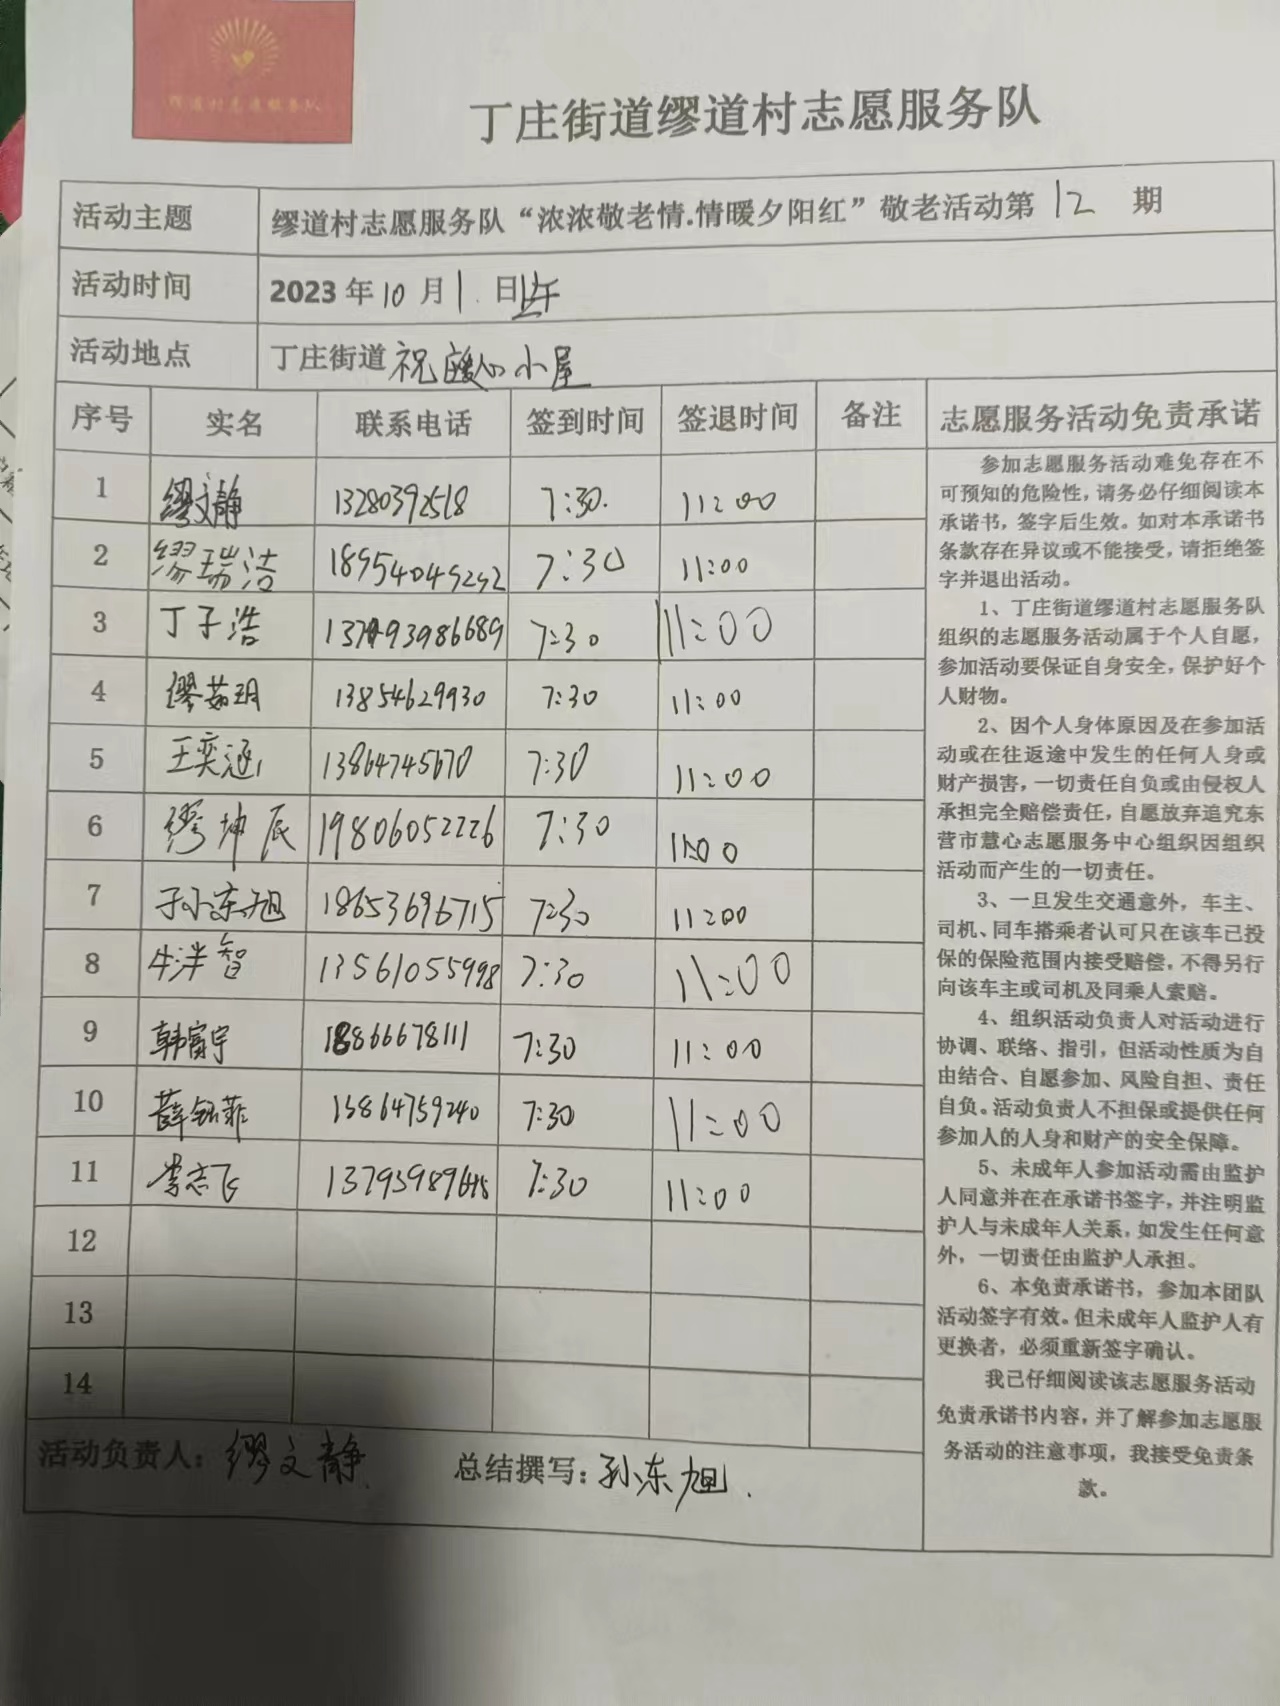 缪道村志愿服务队
丁庄街道缪道村志愿服务队
活动主题 缪道村志愿服务队“浓浓敬老情.情暖夕阳红”敬老活动第 12 期
活动时间 2023 年 10 月 1 日上午
活动地点 丁庄街道 祝 暖心小屋
序号 实名 联系电话 签到时间 签退时间 备注
1 缪文静 13280392518 7:30. 11:00
2 缪瑞洁 18954049292 7:30 11:00
3 丁子浩 7:30 11:00
4 缪茹玥 13854629930 7:30 11:00
5 王奕涵 13864745670 7:30 11:00
6 缪坤辰 19806052226 7:30 11:00
7 孙东旭 18653696715 7:30 11:00
8 牛泮智 13561055998 7:30 11:00
9 韩富宇 18866678111 7:30 11:00
10 薛钰菲 13864759240 7:30 11:00
11 李志飞 7:30 11:00
12
13
14
活动负责人：缪文静 总结撰写：孙东旭.
志愿服务活动免责承诺
参加志愿服务活动难免存在不
可预知的危险性，请务必仔细阅读本
承诺书，签字后生效。如对本承诺书
条款存在异议或不能接受，请拒绝签
字并退出活动。
1、丁庄街道缪道村志愿服务队
组织的志愿服务活动属于个人自愿，
参加活动要保证自身安全，保护好个
人财物。
2、因个人身体原因及在参加活
动或在往返途中发生的任何人身或
财产损害，一切责任自负或由侵权人
承担完全赔偿责任，自愿放弃追究东
营市慧心志愿服务中心组织因组织
活动而产生的一切责任。
3、一旦发生交通意外，车主、
司机、同车搭乘者认可只在该车已投
保的保险范围内接受赔偿，不得另行
向该车主或司机及同乘人索赔。
4、组织活动负责人对活动进行
协调、联络、指引，但活动性质为自
由结合、自愿参加、风险自担、责任
自负。活动负责人不担保或提供任何
参加人的人身和财产的安全保障。
5、未成年人参加活动需由监护
人同意并在在承诺书签字，并注明监
护人与未成年人关系，如发生任何意
外，一切责任由监护人承担。
6、本免责承诺书，参加本团队
活动签字有效。但未成年人监护人有
更换者，必须重新签字确认。
我已仔细阅读该志愿服务活动
免责承诺书内容，并了解参加志愿服
务活动的注意事项，我接受免责条
款。